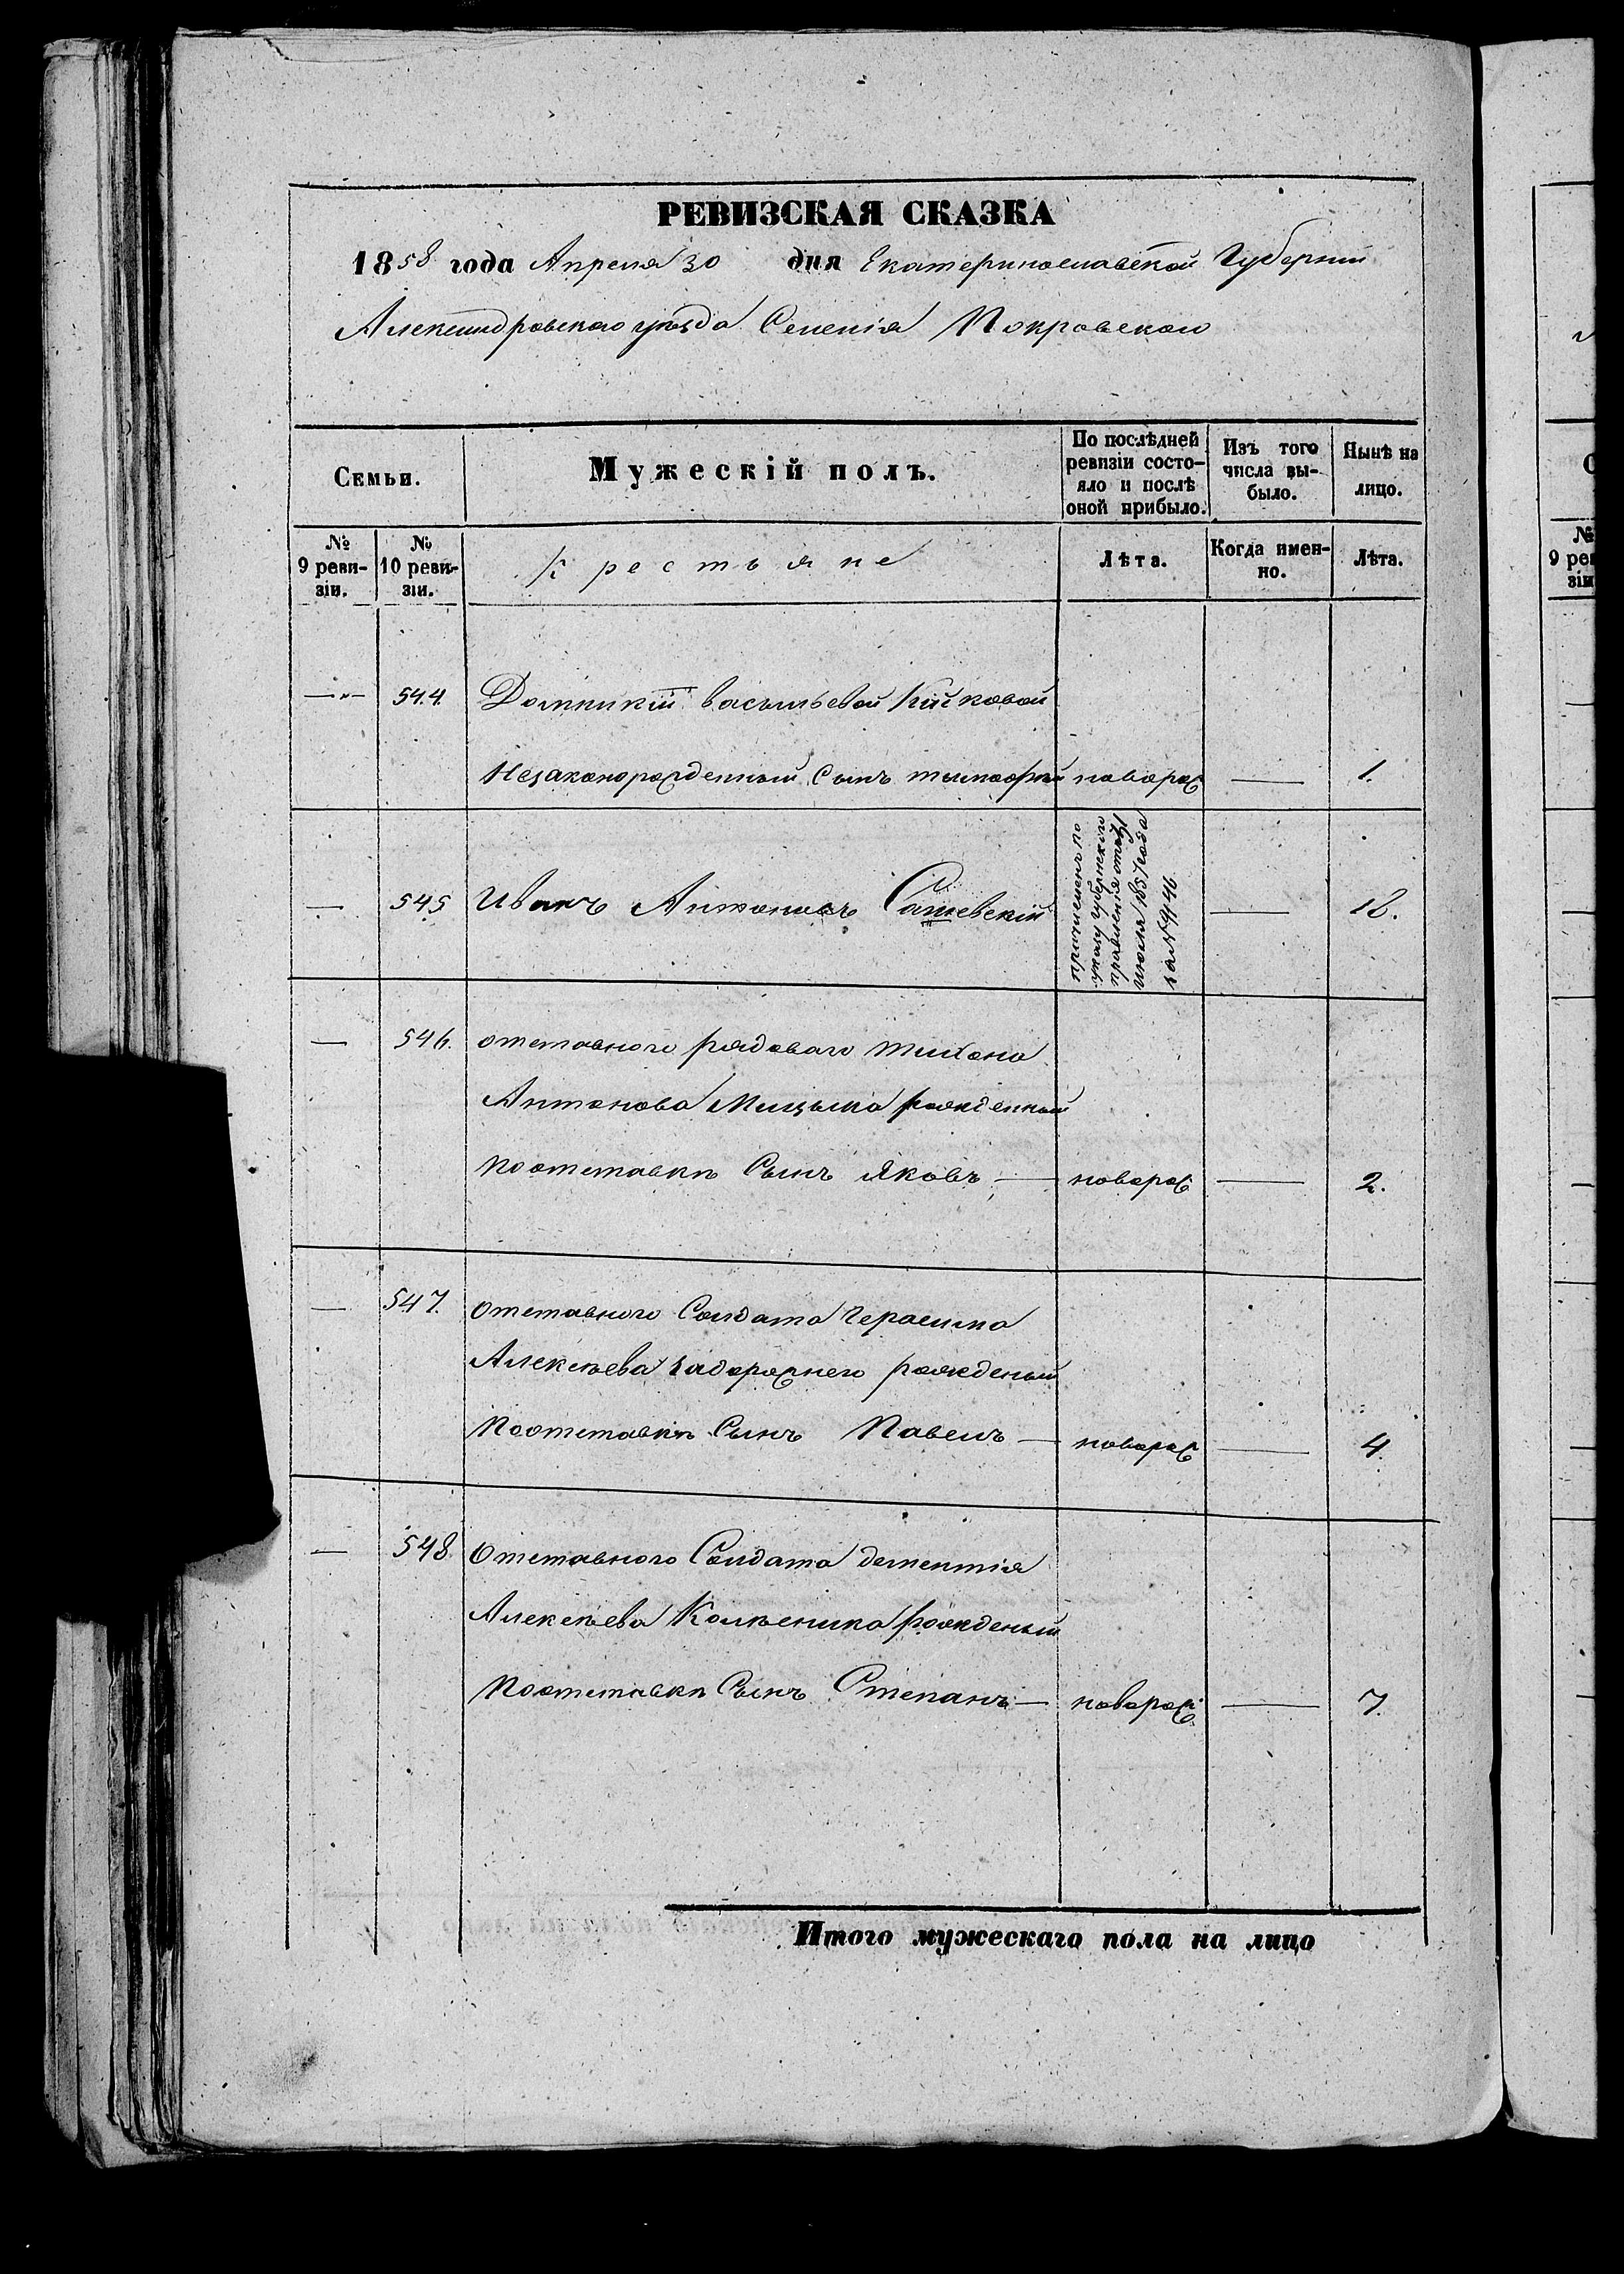 РЕВИЗСКАЯ СКАЗКА
1858 года Апреля 30 дня Екатеринославской Губернии
Александровского уѣзда Селенія Покровского
Семьи.
Мужескій полъ.
По послѣдней ревизіи состояло и послѣ оной прибыло.
Изъ того числа выбыло.
Нынѣ на лицо.
№ 9 ревизіи.
№ 10 ревизіи.
Крестьяне
Лѣта.
Когда именно.
Лѣта.
— 544. Домникіи васильевой
Незаконорожденный Сынъ тимофей новорож — 1.
— 545 Иванъ Антоновъ Сашевскій — 18.
причисленъ по
указу губернского
правленія отъ
июля 1857 года
за № 9146
— 546. отставного рядоваго тихона
Антонова Мицыка рожденный
поотставкѣ Сынъ Яковъ — новорож — 2.
— 547. отставного Солдата Герасима
Алексѣева Задорожнего рожденый
Поотставкѣ Сынъ Павелъ — новорож — 4.
— 548. Отставного Солдата дементія
Алексѣева Колѣсника рожденый
Поотставкѣ Сынъ Степанъ — новорож — 7.
Итого мужескаго пола на лицо